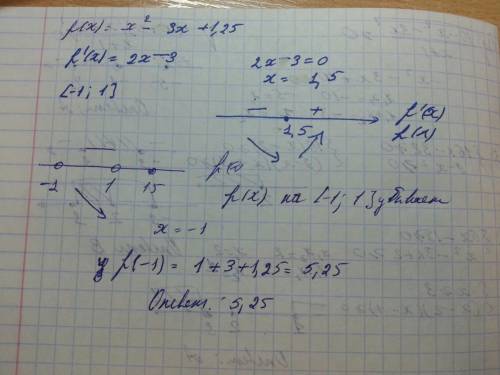 f(x) = x² - 3x + 1,25
f'(x) = 2x - 3
2x - 3 = 0
x = 1,5
[-1; 1]
- +
1,5
f'(x)
f(x)
-
-1 1 1,5
f(x) на [-1; 1] убывает
x = -1
f(-1) = 1 + 3 + 1,25 = 5,25
Ответ: 5,25